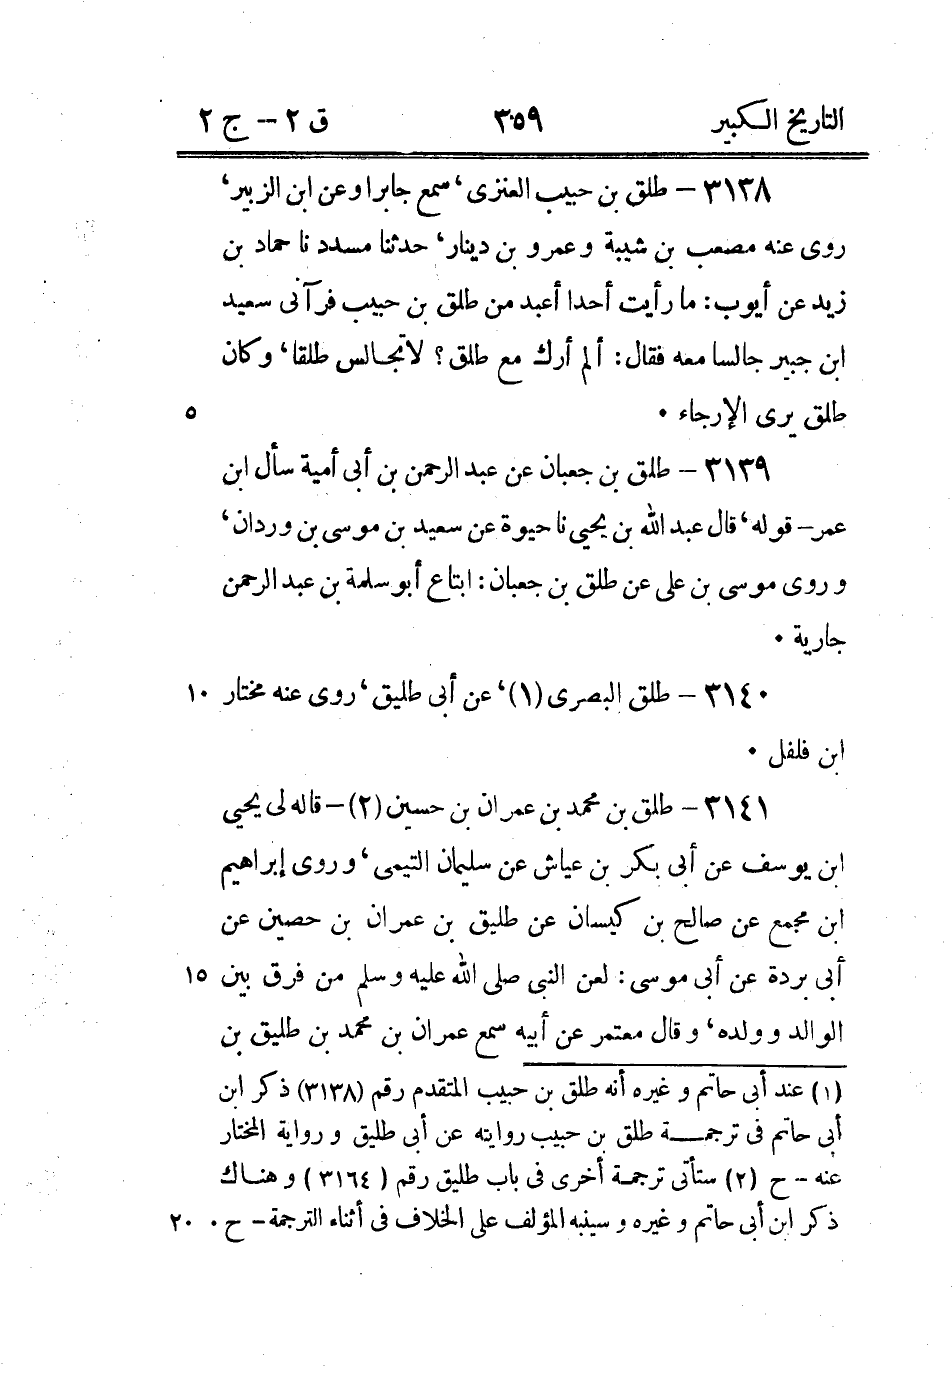 التاريخ الكبير ٣٥٩ ق ٢ – ج ٢
٣١٣٨ – طلق بن حبيب العنزى، سمع جابرا وعن ابن الزبير،
روى عنه مصعب بن شيبة و عمرو بن دينار، حدثنا مسدد نا حماد بن
زيد عن أيوب: ما رأيت أحدا أعبد من طلق بن حبيب فرآنى سعيد
ابن جبير جالسا معه فقال: ألم أرك مع طلق؟ لا تجالس طلقا، وكان
طلق يرى الإرجاء ٠ ٥
٣١٣٩ – طلق بن جعبان عن عبد الرحمن بن أبى أمية سأل ابن
عمر – قوله، قال عبد الله بن يحيى نا حيوة عن سعيد بن موسى بن وردان،
و روى موسى بن على عن طلق بن جعبان: ابتاع أبو سلمة بن عبد الرحمن
جارية ٠
٣١٤٠ – طلق البصرى (١)، عن أبى طليق، روى عنه مختار ١٠
ابن فلفل ٠
٣١٤١ – طلق بن محمد بن عمران بن حسين (٢) – قاله لى يحيى
ابن يوسف عن أبى بكر بن عياش عن سليمان التيمى، و روى إبراهيم
ابن مجمع عن صالح بن كيسان عن طليق بن عمران بن حصين عن
أبى بردة عن أبى موسى: لعن النبى صلى الله عليه و سلم من فرق بين ١٥
الوالد و ولده، و قال معتمر عن أبيه سمع عمران بن محمد بن طليق بن
(١) عند أبى حاتم و غيره أنه طلق بن حبيب المتقدم رقم (٣١٣٨) ذكر ابن
أبى حاتم فى ترجمة طلق بن حبيب روايته عن أبى طليق و رواية المختار
عنه – ح (٢) ستأتى ترجمة أخرى فى باب طليق رقم (٣١٦٤) و هناك
ذكر ابن أبى حاتم و غيره و سينبه المؤلف على الخلاف فى أثناء الترجمة – ح ٠ ٢٠